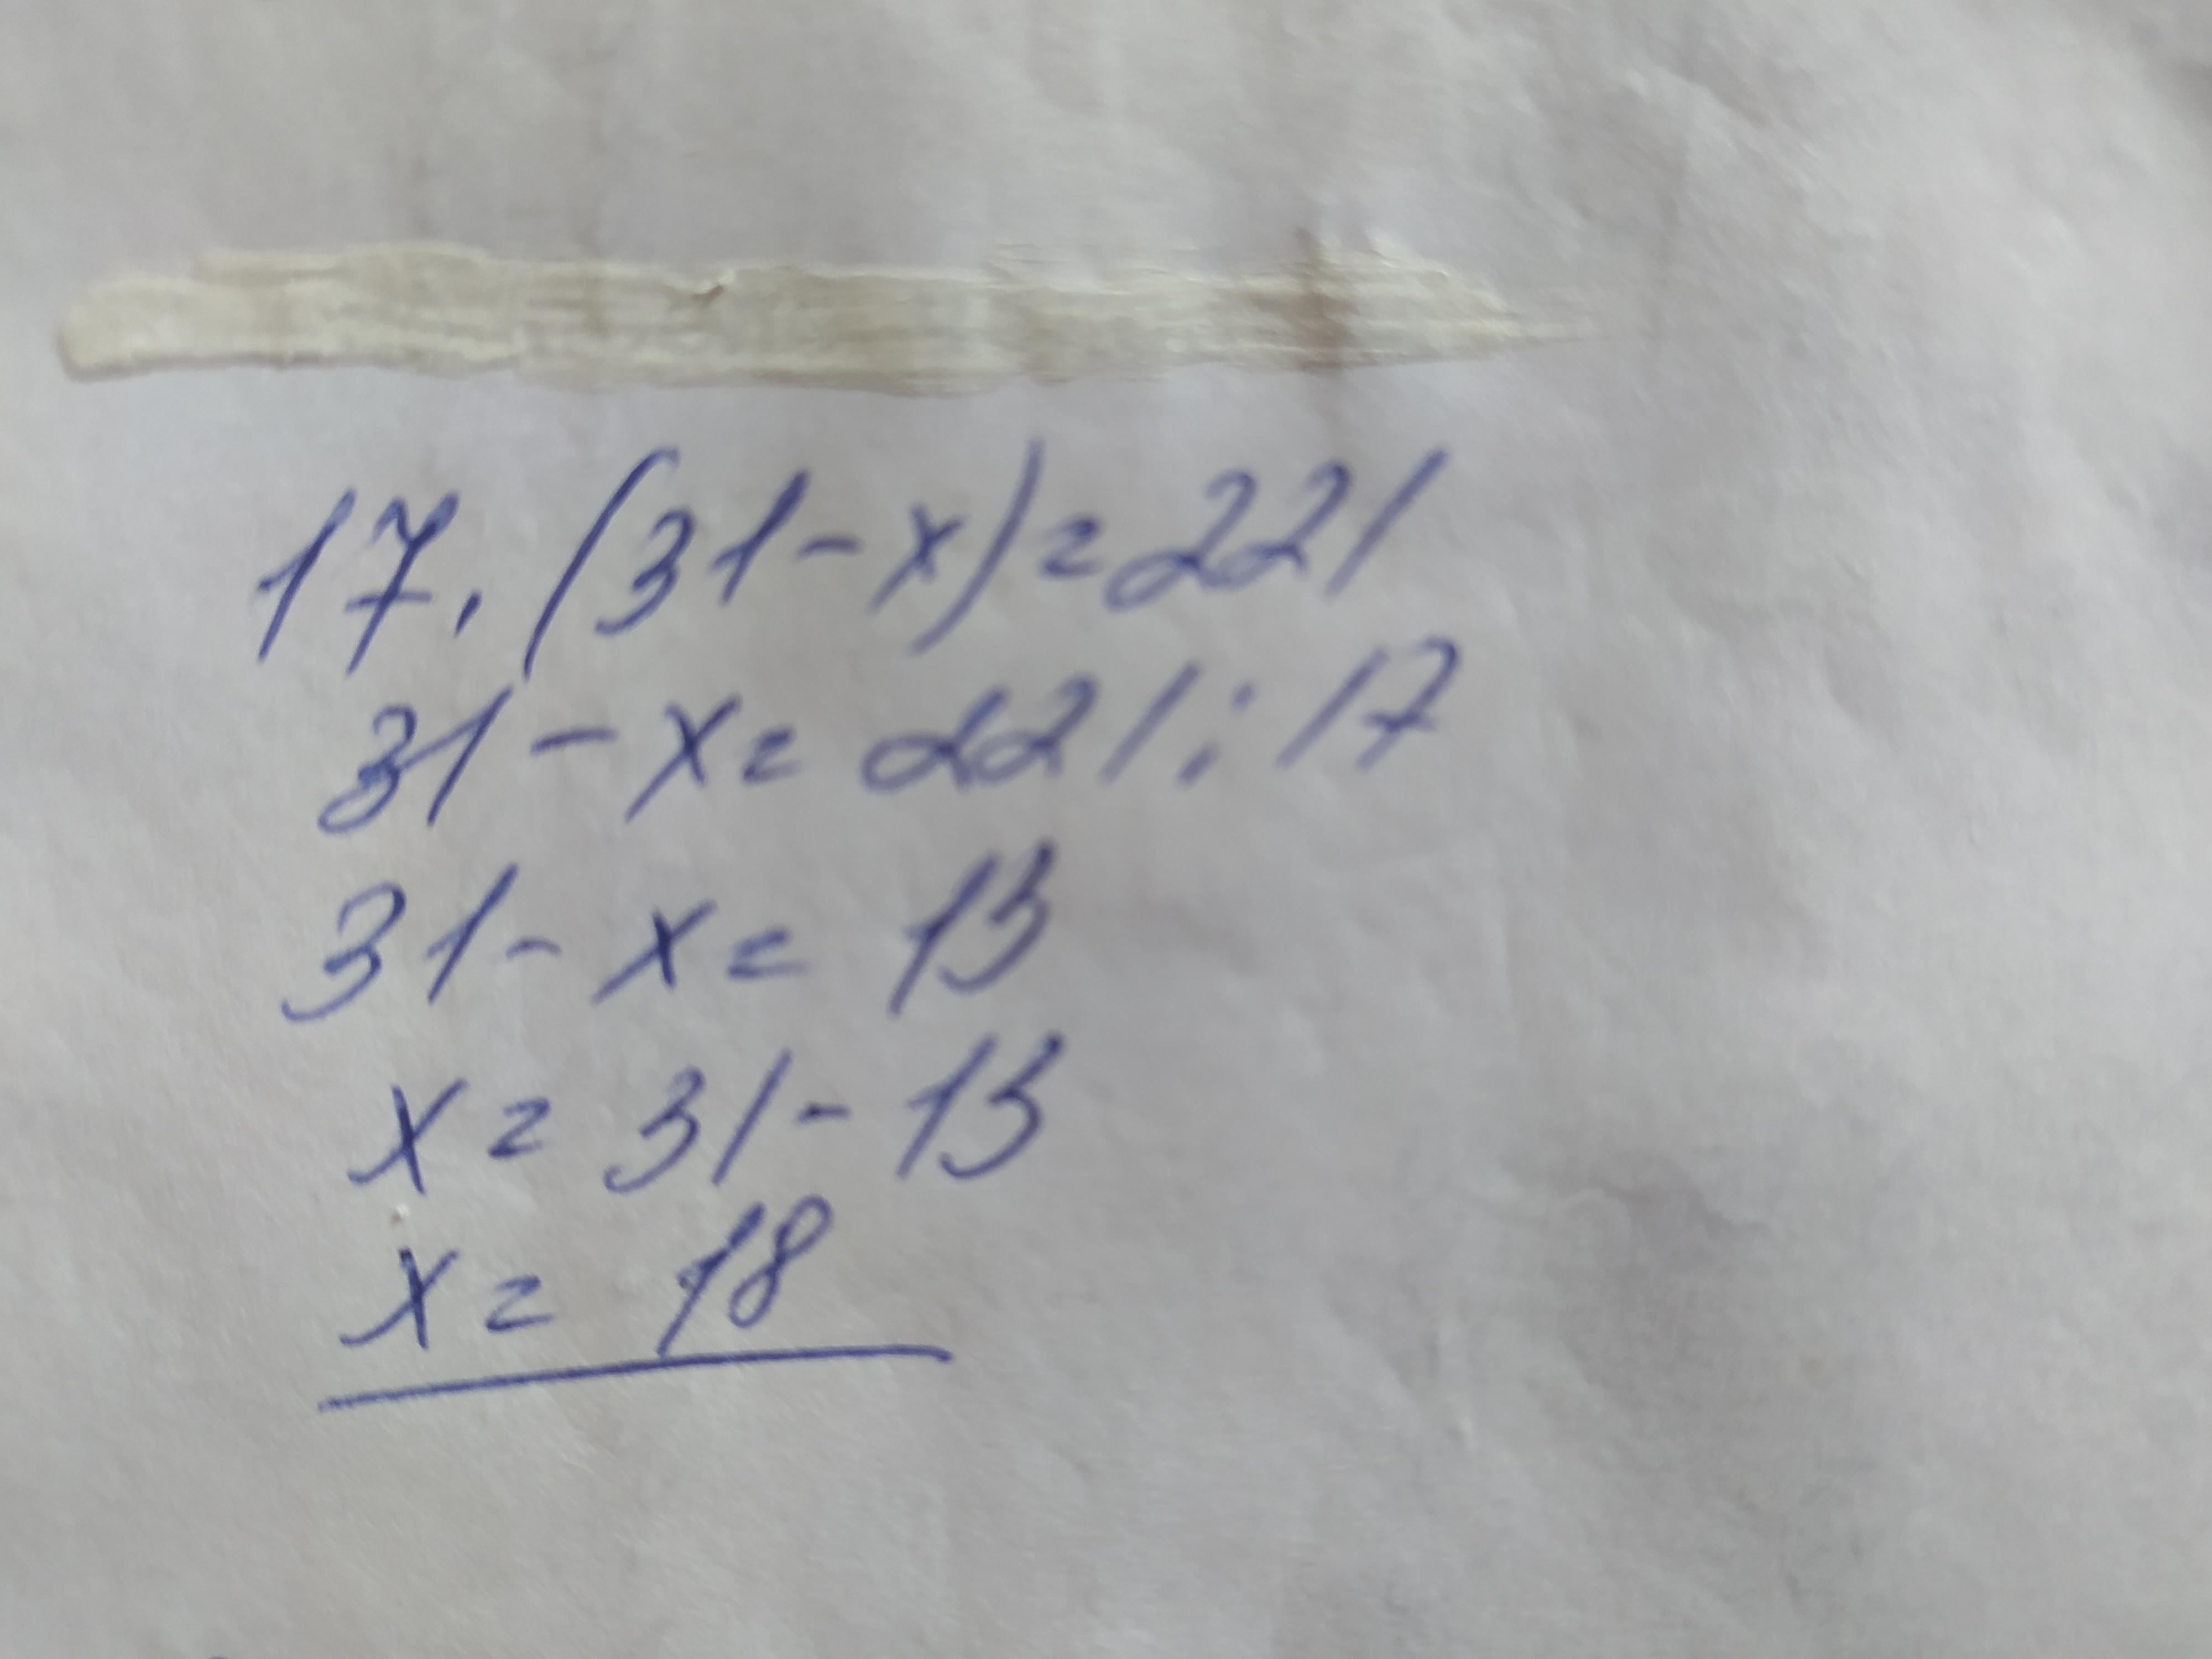 17. (31-x)=221
31-x=221:17
31-x=13
x=31-13
x=18